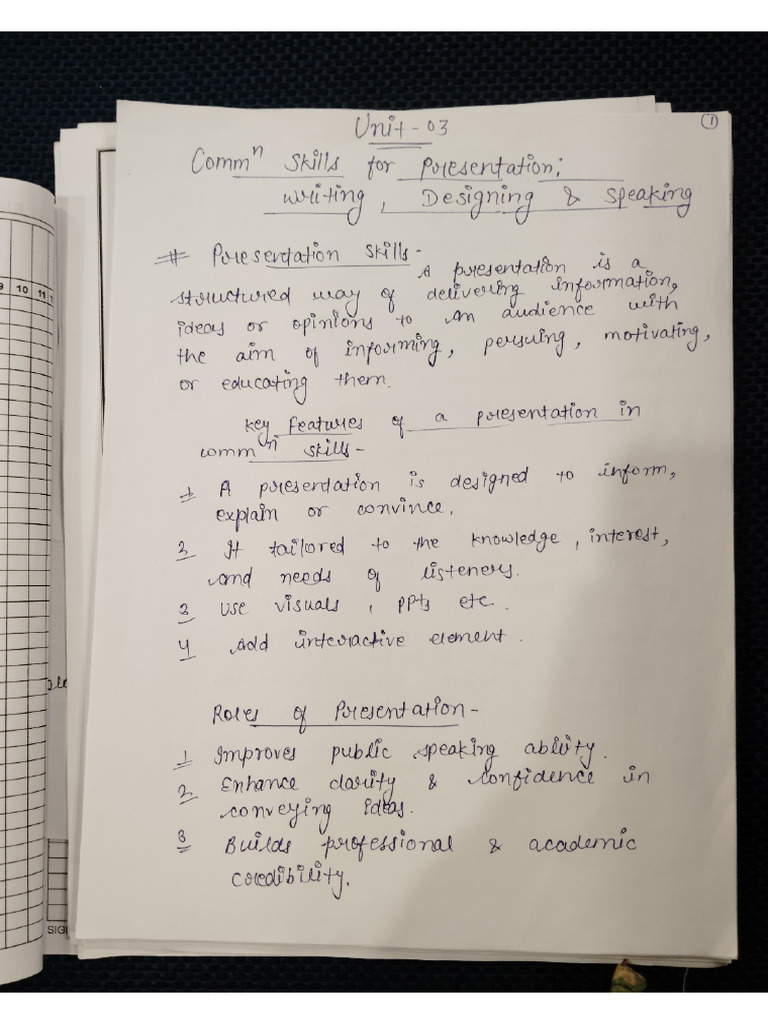 1
Unit-03
Commⁿ Skills for Presentation:
Writing, Designing & Speaking
# Presentation Skills-
A presentation is a
structured way of delivering information,
ideas or opinions to an audience with
the aim of informing, persuing, motivating,
or educating them.
Key features of a presentation in
commⁿ skills-
1 A presentation is designed to inform,
explain or convince.
2 It tailored to the knowledge, interest,
and needs of listeners.
3 Use visuals, PPts etc.
4 Add interactive element.
Roles of Presentation-
1 Improves public speaking ability.
2 Enhance clarity & confidence in
conveying ideas.
3 Builds professional & academic
credibility.
9 10 11
SIG